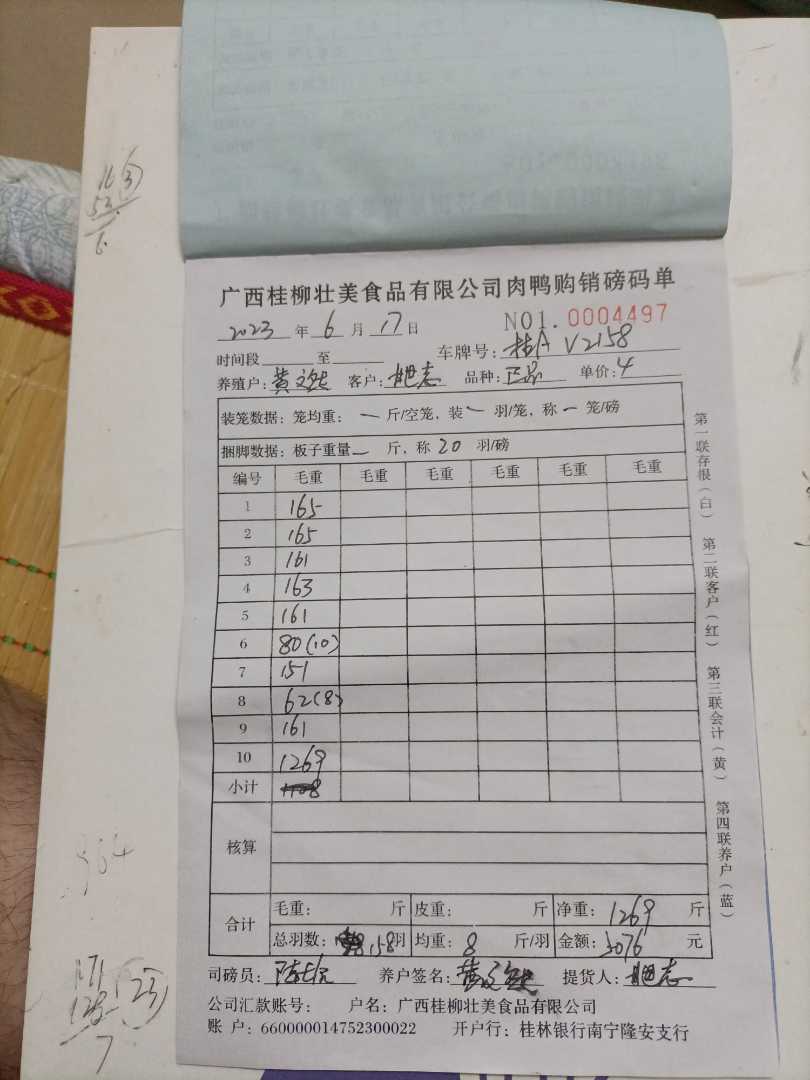 16
53
6
广西桂柳壮美食品有限公司肉鸭购销磅码单
2023 年 6 月 17 日 NO1. 0004497
时间段 至 车牌号: 桂A V2158
养殖户: 黄文 客户: 志 品种: 正品 单价: 4
装笼数据: 笼均重: 一 斤/空笼, 装 一 羽/笼, 称 一 笼/磅
捆脚数据: 板子重量 一 斤, 称 20 羽/磅
编号 毛重 毛重 毛重 毛重 毛重 毛重
1 165
2 165
3 161
4 163
5 161
6 80(10)
7 151
8 62(8)
9 161
10 1269
小计
核算
合计 毛重: 斤 皮重: 斤 净重: 1269 斤
总羽数: 158 羽 均重: 8 斤/羽 金额: 5076 元
司磅员: 陈 养户签名: 黄文 提货人: 志
公司汇款账号: 户名: 广西桂柳壮美食品有限公司
账 户: 660000014752300022 开户行: 桂林银行南宁隆安支行
第一联存根(白) 第二联客户(红) 第三联会计(黄) 第四联养户(蓝)
964
171
128
7
23